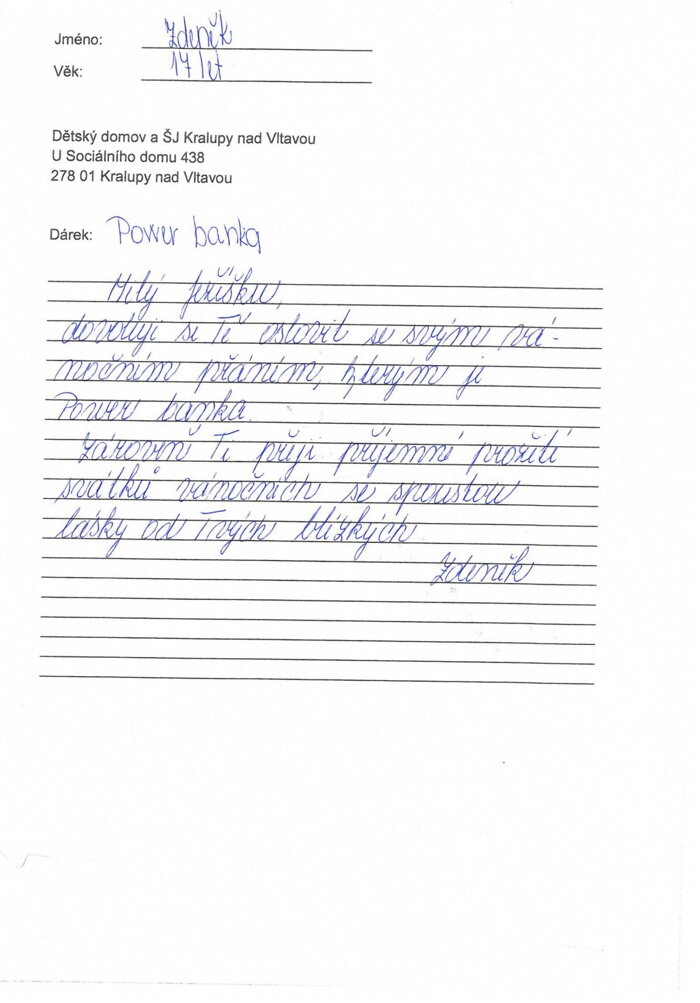 Jméno: Zdeněk
Věk: 17 let
Dětský domov a ŠJ Kralupy nad Vltavou
U Sociálního domu 438
278 01 Kralupy nad Vltavou
Dárek: Power banka
Milý Ježíšku,
dovoluji si Tě oslovit se svým vá-
nočním přáním, kterým je
Power banka.
Zárovňě Ti přeji příjemné prožití
svátků vánočních se spoustou
lásky od Tvých blízkých
Zdeněk